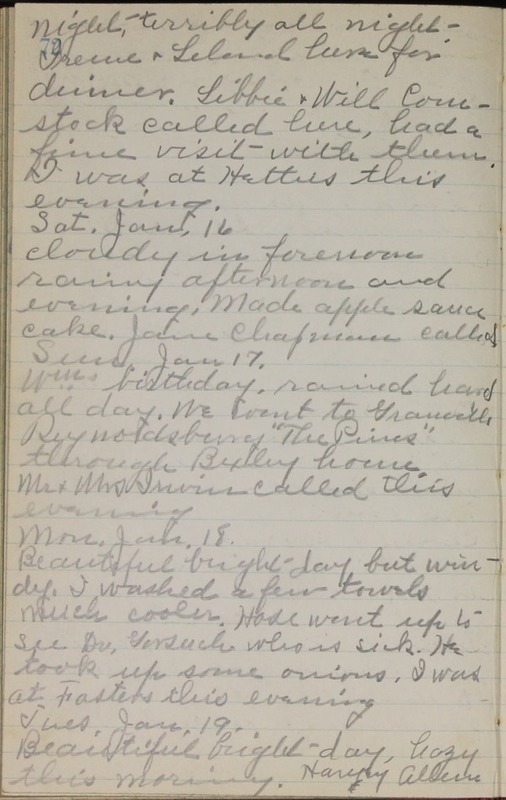 night, terribly all night-
72
Irene & Leland here for
dinner. Libbie & Will Com-
stock called here, had a
fine visit with them.
I was at Hetties this
evening.
Sat. Jan, 16
cloudy in forenoon
rainy afternoon and
evening, Made apple sauce
cake. Jane Chapman called
Sun, Jan 17.
Wms birthday. rained hard
all day. We went to Granville
Reynoldsburg "The Pines"
through Bexley home
Mr & Mrs Irwin called this
evening
Mon. Jan, 18.
Beautiful bright day but win-
dy. I washed a few towels
much cooler. Hose went up to
see Dr, Gorsuch who is sick. He
took up some onions. I was
at Fosters this evening
Tues, Jan, 19.
Beautiful bright-day, hazy
this morning. Harvey Allen